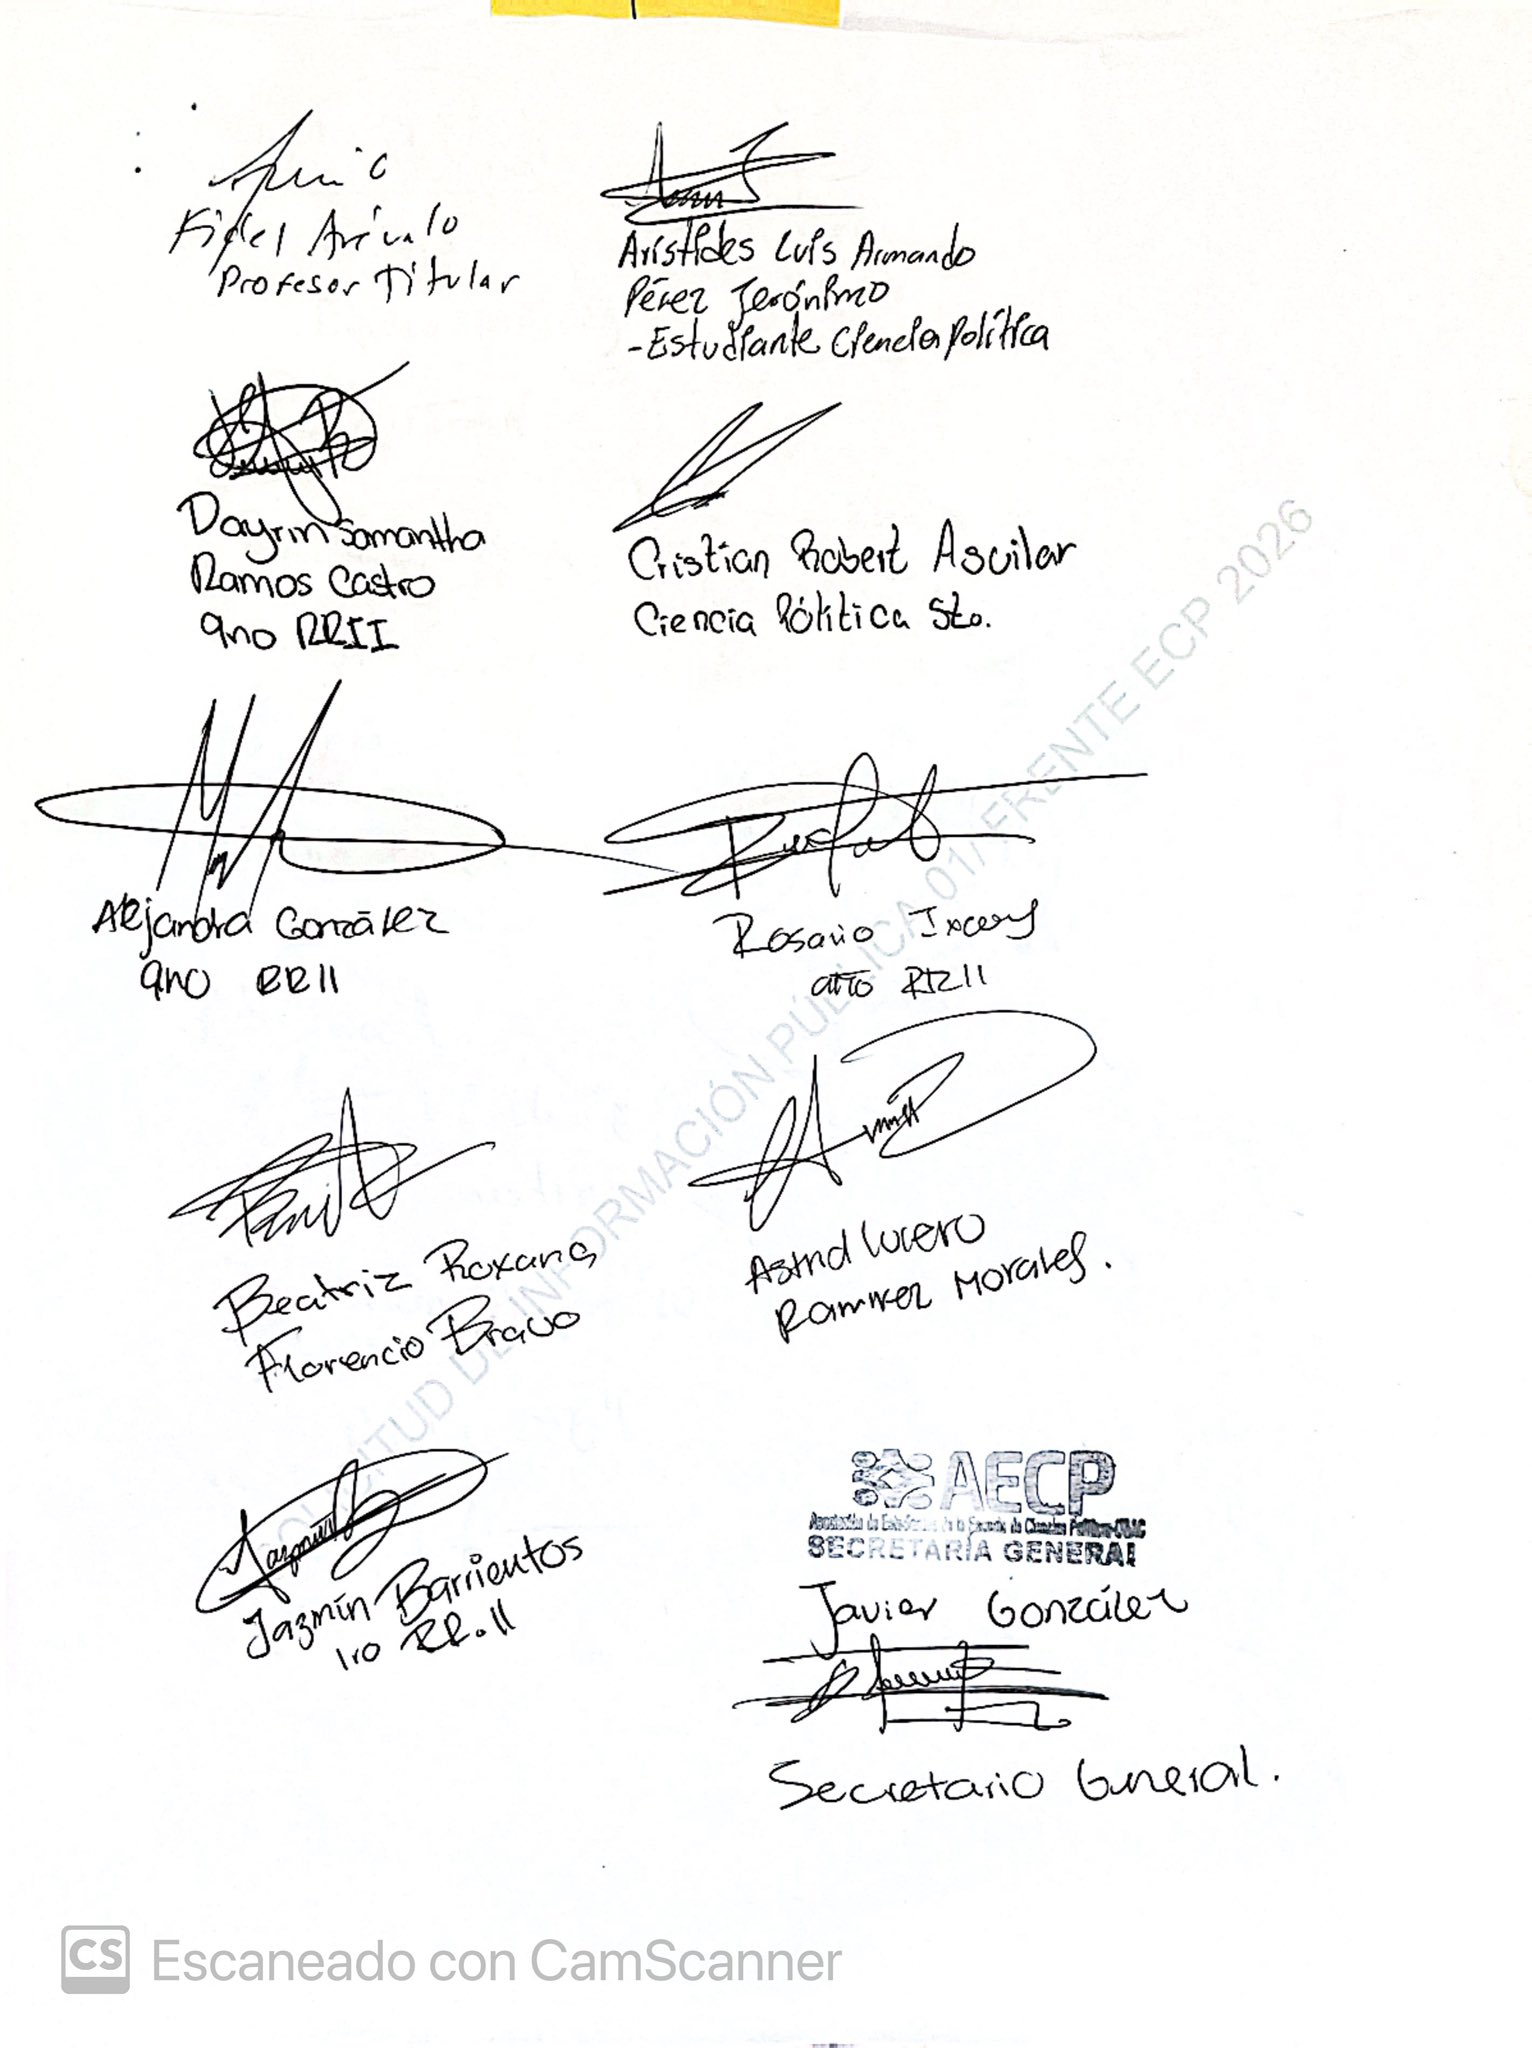 Fidel Arévalo
Profesor Titular
Arístides Luis Armando
Pérez Jerónimo
-Estudiante Ciencia Política
Dayrin Samantha
Ramos Castro
9no RRII
Cristian Robert Aguilar
Ciencia Pólitica 5to.
Alejandra González
9no RRII
Rosario
RRII
Beatriz Roxana
Florencio Bravo
Astrid Lucero
Ramirez Morales.
Jazmín Barrientos
1ro RR.II
AECP
Asociación de Estudiantes de la Escuela de Ciencia Política-USAC
SECRETARÍA GENERAL
Javier González
Secretario General.
SOLICITUD DE INFORMACIÓN PÚBLICA 01/ FRENTE ECP 2026
CS Escaneado con CamScanner